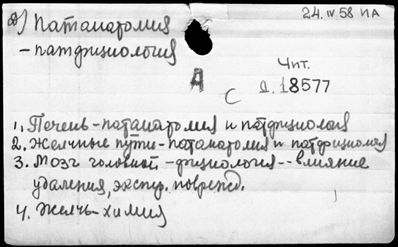 а) Патанатомия
24. IV 58 ИА
- патфизиология
Чит.
А
Д. 18577
С
1. Печень - патанатомия и патфизиология
2. Желчные пути - патанатомия и патфизиология
3. Мозг головной - физиология -- влияние
удаления, экспер. поврежд.
4. Желчь - химия